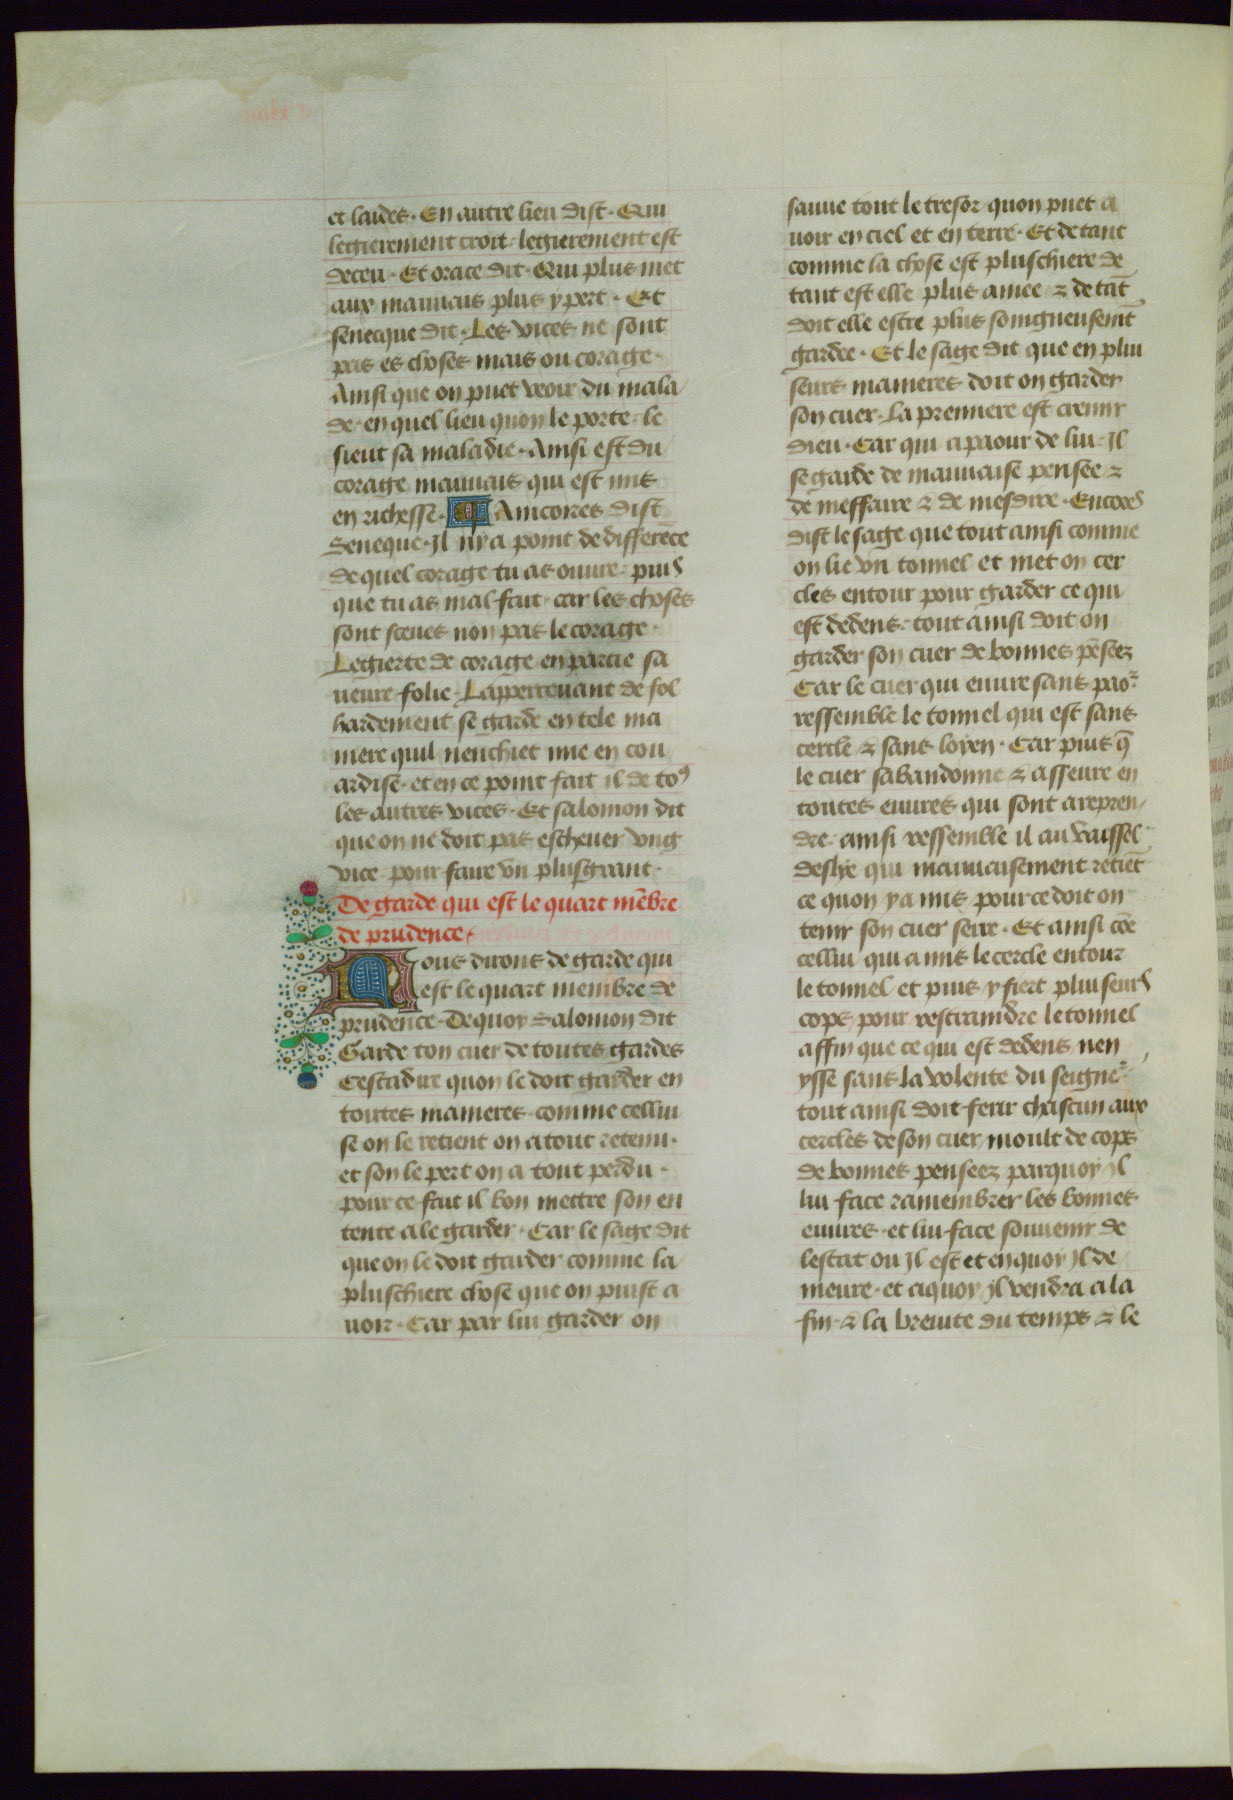 et laides. En autre lieu dist. Qui
legierement croit. legierement est
deceu. Et orace dit. Qui plus met
aux mauuais plus y pert. Et
senecque dit. Les vices ne sont
pas es choses mais ou corage.
Ainsi que on puet veoir du mala
de. en quel lieu quon le porte. le
sieut sa maladie. Ainsi est du
corage mauuais qui est mis
en richesse. Aincores dist
Seneque. Il ny a point de differēce
de quel corage tu as ouure. puis
que tu as mal fait. car les choses
sont sceues non pas le corage.
Legierte de corage en partie sa
ueure folie. Lappercevant de fol
hardement se garde en tele ma
niere quil nenchiet mie en cou
ardise. et en ce point fait il de toꝰ
les autres vices. Et salomon dit
que on ne doit pas escheuer vng
vice pour faire vn plusgrant.
De garde qui est le quart mēbre
de prudence.
Nous dirons de garde qui
est le quart membre de
prudence. De quoy Salomon dit
Garde ton cuer de toutes gardes
Cestadire quon le doit garder en
toutes manieres. comme cellui
se on le retient on a tout retenu.
et son le pert on a tout perdu.
pour ce fait il bon mettre son en
tente a le garder. Car le sage dit
que on le doit garder comme la
pluschiere chose que on puist a
uoir. Car par lui garder on
sauue tout le tresor quon puet a
uoir en ciel et en terre. Et de tant
comme la chose est pluschiere de
tant est elle plus amee ⁊ de tāt
doit elle estre plus songneusemt̄
gardee. Et le sage dit que en plui
seurs manieres doit on garder
son cuer. La premiere est cremir
dieu. Car qui a paour de lui. Il
se garde de mauuaise pensee ⁊
de meffaire ⁊ de mesdire. Encores
dist le sage que tout ainsi comme
on lie vn tonnel et met on cer
cles entour pour garder ce qui
est dedens. tout ainsi doit on
garder son cuer de bonnes pēsees
Car le cuer qui euure sans paor
ressemble le tonnel qui est sans
cercle ⁊ sans loyen. Car puis q̄
le cuer sabandonne ⁊ asseure en
toutes euures qui sont a repren
dre. ainsi ressemble il au vaissel
deslye qui mauuaisement retiēt
ce quon y a mis. pour ce doit on
tenir son cuer serre. Et ainsi cōe
cellui qui a mis le cercle entour
le tonnel et puis y fiert pluiseurs
cops pour restraindre le tonnel
affin que ce qui est dedens nen
ysse sans la volente du seigneur
tout ainsi doit ferir chascun aux
cercles de son cuer moult de cops
de bonnes pensees parquoy il
lui face ramembrer les bonnes
euures. et lui face souuenir de
lestat ou Il est et en quoy Il de
meure. et a quoy il vendra a la
fin. ⁊ la breuite du temps ⁊ le